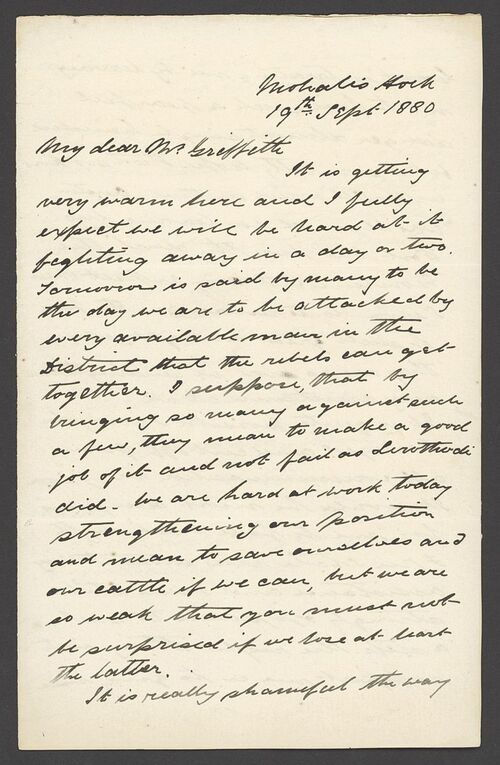 Mohalis Hoek
19th Sept 1880
My dear Mr Griffith
It is getting
very warm here and I fully
expect we will be hard at it
fighting away in a day or two.
Tomorrow is said by many to be
the day we are to be attacked by
every available man in the
District that the rebels can get
together. I suppose, that by
bringing so many against such
a few, they mean to make a good
job of it and not fail as Lerothodi
did - We are hard at work today
strengthening our position
and mean to save ourselves and
our cattle if we can, but we are
so weak that you must not
be surprised if we lose at least
the latter.
It is really shameful the way